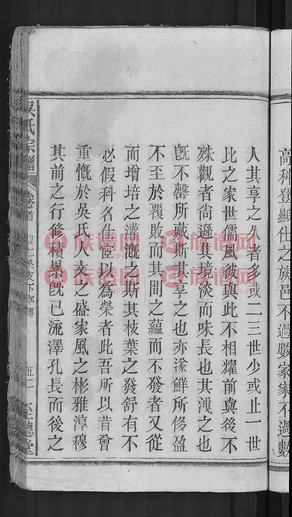 高科登顯仕之族也不過數家家不過數
人其享之久者多或二三世少或止一世
比之家世儒風彼與此不相耀前與後不
殊觀者尚遜其境淡而味長也其洩之也
旣不罄所蓄斯享之也亦濛鮮所侈盈
不至於覆敗而其間之蘊而不發者又從
而增培之灌漑之斯其枝葉之發舒有不
必假科名仕宦以為榮者此吾所以昔曾
重慨於吳氏人文之盛家風之彬雅淳穆
其前之行修積累旣已流澤孔長而後之
吳氏宗譜
卷首
五二
至德堂